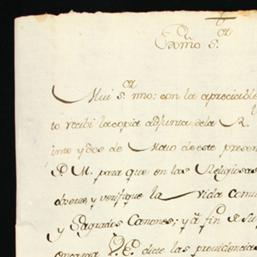 Exmo Sor
Mui Sor mio: con la apreciable
to recibi la copia adjunta de la R.
inte y dos de Mayo de este presen
P.M. para que en las Religiosas
observe y verifique la vida comu
y Sagrados Canones; y â fin de su
V.E. dicte las providencias